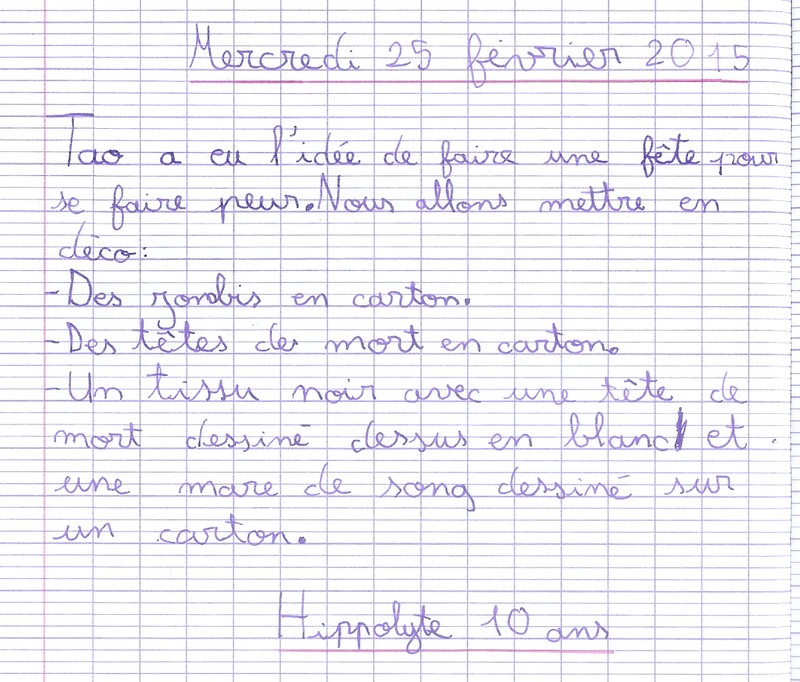 Mercredi 25 février 2015
Tao a eu l'idée de faire une fête pour
se faire peur. Nous allons mettre en
déco:
-Des zombis en carton.
-Des têtes de mort en carton.
-Un tissu noir avec une tête de
mort dessiné dessus en blanc et
une mare de sang dessiné sur
un carton.
Hippolyte 10 ans